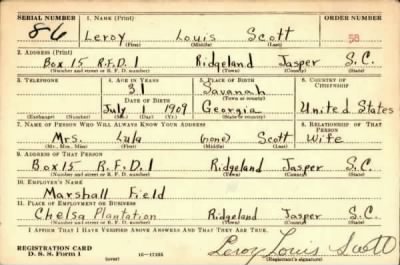 SERIAL NUMBER 1. NAME (Print) ORDER NUMBER
86 Leroy Louis Scott 58
(First) (Middle) (Last)
2. ADDRESS (Print)
Box 15 R.F.D. 1 Ridgeland Jasper S.C.
(Number and street or R. F. D. number) (Town) (County) (State)
3. TELEPHONE 4. AGE IN YEARS 5. PLACE OF BIRTH 6. COUNTRY OF CITIZENSHIP
31 Savanah
DATE OF BIRTH (Town or county)
July 1 1909 Georgia United States
(Exchange) (Number) (Mo.) (Day) (Yr.) (State or country)
7. NAME OF PERSON WHO WILL ALWAYS KNOW YOUR ADDRESS 8. RELATIONSHIP OF THAT PERSON
Mrs. Lula (none) Scott Wife
(Mr., Mrs., Miss) (First) (Middle) (Last)
9. ADDRESS OF THAT PERSON
Box 15 R.F.D. 1 Ridgeland Jasper S.C.
(Number and street or R. F. D. number) (Town) (County) (State)
10. EMPLOYER'S NAME
Marshall Field
11. PLACE OF EMPLOYMENT OR BUSINESS
Chelsa Plantation Ridgeland Jasper S.C.
(Number and street or R. F. D. number) (Town) (County) (State)
I AFFIRM THAT I HAVE VERIFIED ABOVE ANSWERS AND THAT THEY ARE TRUE.
Leroy Louis Scott
REGISTRATION CARD
D. S. S. Form 1 (over) 16—17105 (Registrant's signature)